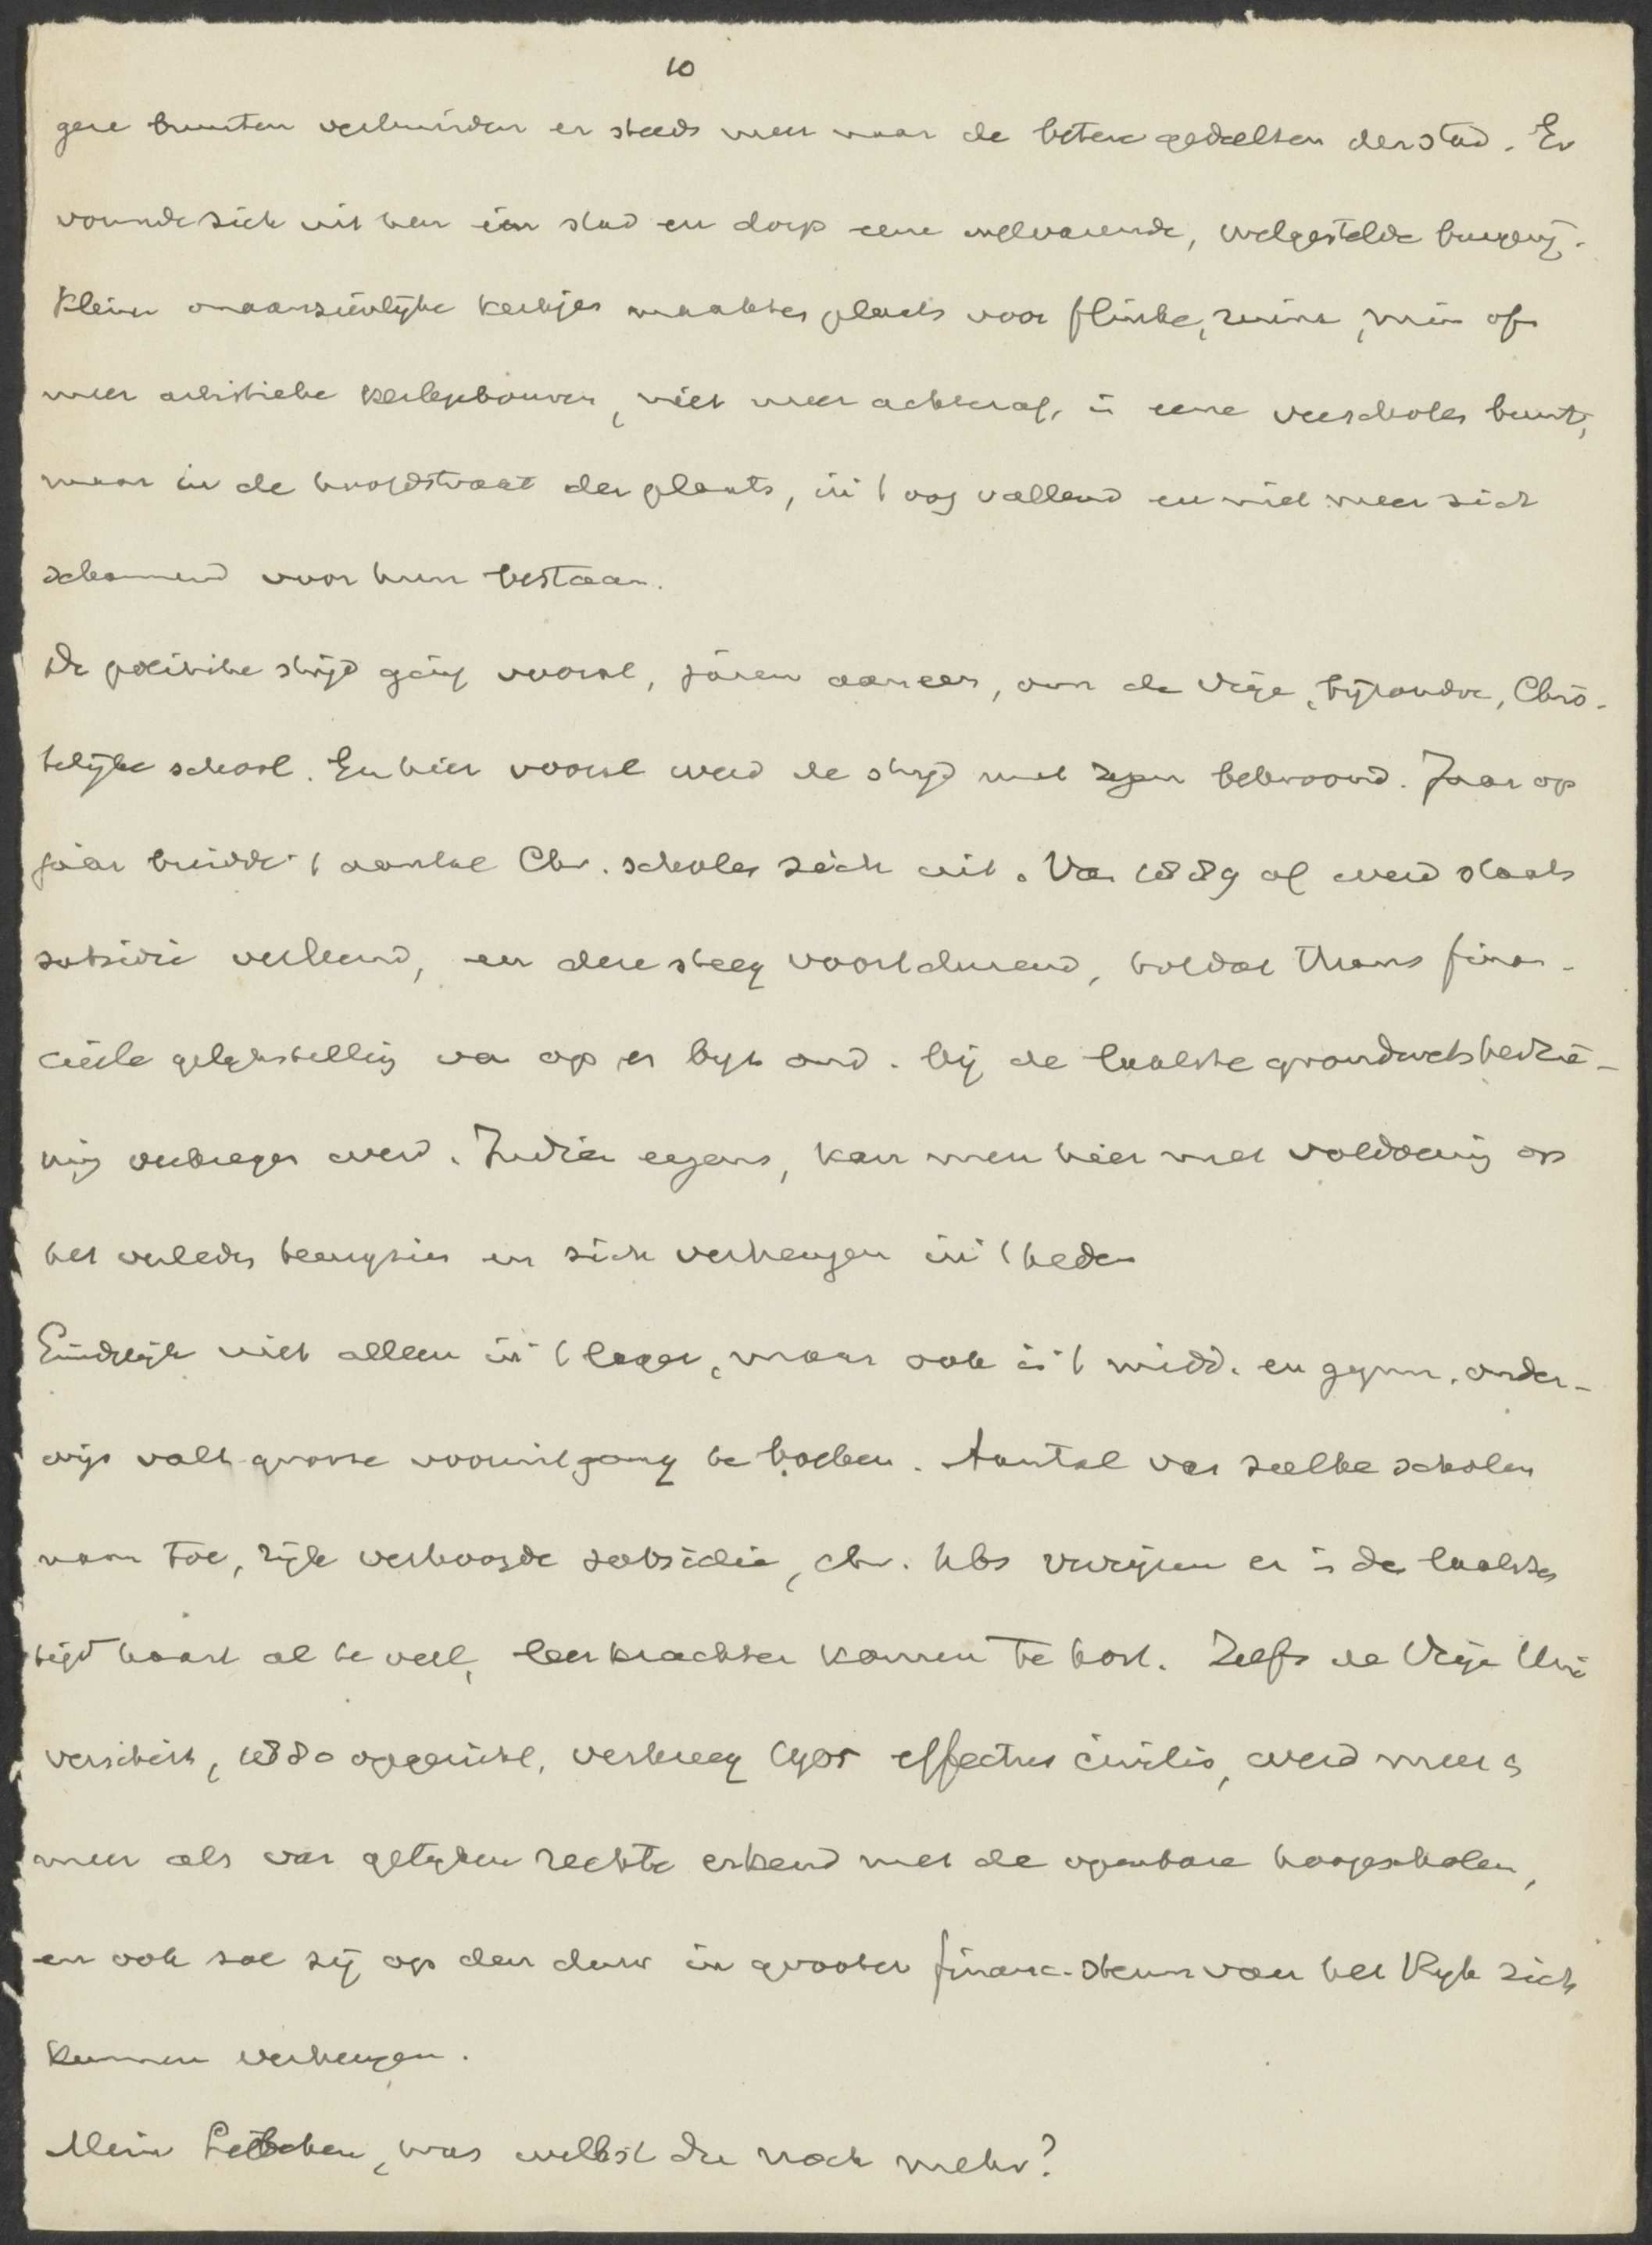 10
gere buurten verhuisden er steeds meer naar de betere gedeelten der stad. Er
vormde zich uit hen in stad en dorp eene welvarende, welgestelde burgerij.
Kleine onaanzienlijke kerkjes maakten plaats voor flinke, ruime, min of
meer artistieke kerkgebouwen, niet meer achteraf, in eene verscholen buurt,
maar in de hoofdstraat der plaats, in 't oog vallend en niet meer zich
schamend voor hun bestaan.
De politieke strijd ging vooral, jaren aaneen, om de vrije, bijzondere, Chris-
telijke school. En hier vooral werd de strijd met zegen bekroond. Jaar op
jaar breidde 't aantal Chr. scholen zich uit. Van 1889 af werd staats
subsidie verleend, en deze steeg voortdurend, totdat thans finan-
cieele gelijkstelling van op. en bijz. ond. bij de laatste grondwetsherzie-
ning verkregen werd. Indien ergens, kan men hier met voldoening op
het verleden terugzien en zich verheugen in 't heden
Eindelijk niet alleen in 't lager, maar ook in 't midd. en gymn. onder-
wijs valt groote vooruitgang te boeken. Aantal van zulke scholen
nam toe, rijk verhoogde subsidie, chr. hbs verrijzen er in den laatsten
tijd haast al te veel, leerkrachten komen te kort. Zelfs de Vrije Uni
versiteit, 1880 opgericht, verkreeg 1905 effectus civilis, werd meer en
meer als van gelijken rechte erkend met de openbare hoogescholen,
en ook zal zij op den duur in grooter financ. steun van het Rijk zich
kunnen verheugen.
Mein Liebchen, was willst du noch mehr?